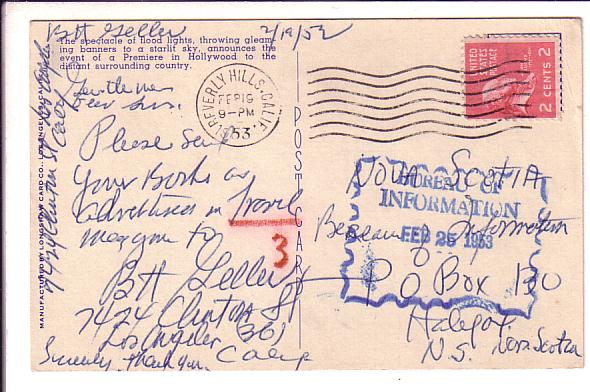 BH Geller 2/19/52
The spectacle of flood lights, throwing gleam-
ing banners to a starlit sky, announces the
event of a Premiere in Hollywood to the
distant surrounding country.
Gentlemen
Dear Sirs.
Please send
your Books as
advertised in Travel
magazine to
3
BH Geller
7424 Clinton St
Los Angeles 36
Calif
Sincerely, thank you.
7424 Clinton St Los Angeles
Calif
MANUFACTURED BY LONGSHAW CARD CO., LOS ANGELES
POST CARD
BEVERLY HILLS, CALIF.
FEB 19
9-PM
1953
UNITED STATES POSTAGE
2 CENTS 2
BUREAU OF
INFORMATION
FEB 25 1953
Nova Scotia
Bureau of Information
P O Box 130
Halifax
N.S. Nova Scotia